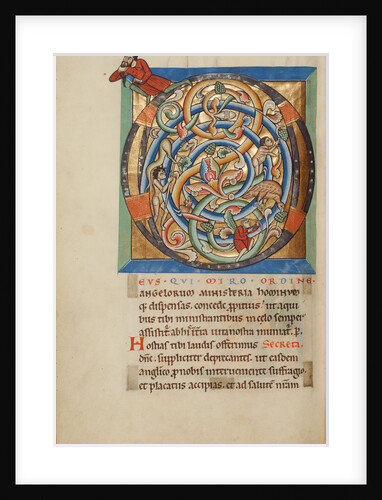 EVS · QVI · MIRO · ORDINE ·
angelorum ministeria hominum
q; dispensas. concede propitius. ut a qui
bus tibi ministrantibus in celo semper
assistit᷑. ab his in terra uita nostra muniat᷑. p.
Hostias tibi laudis offerimus Secreta.
dn̄e. suppliciter deprecantes. ut easdem
anglico pro nobis interueniente suffragio.
et placatus accipias. et ad salutem nr̄am